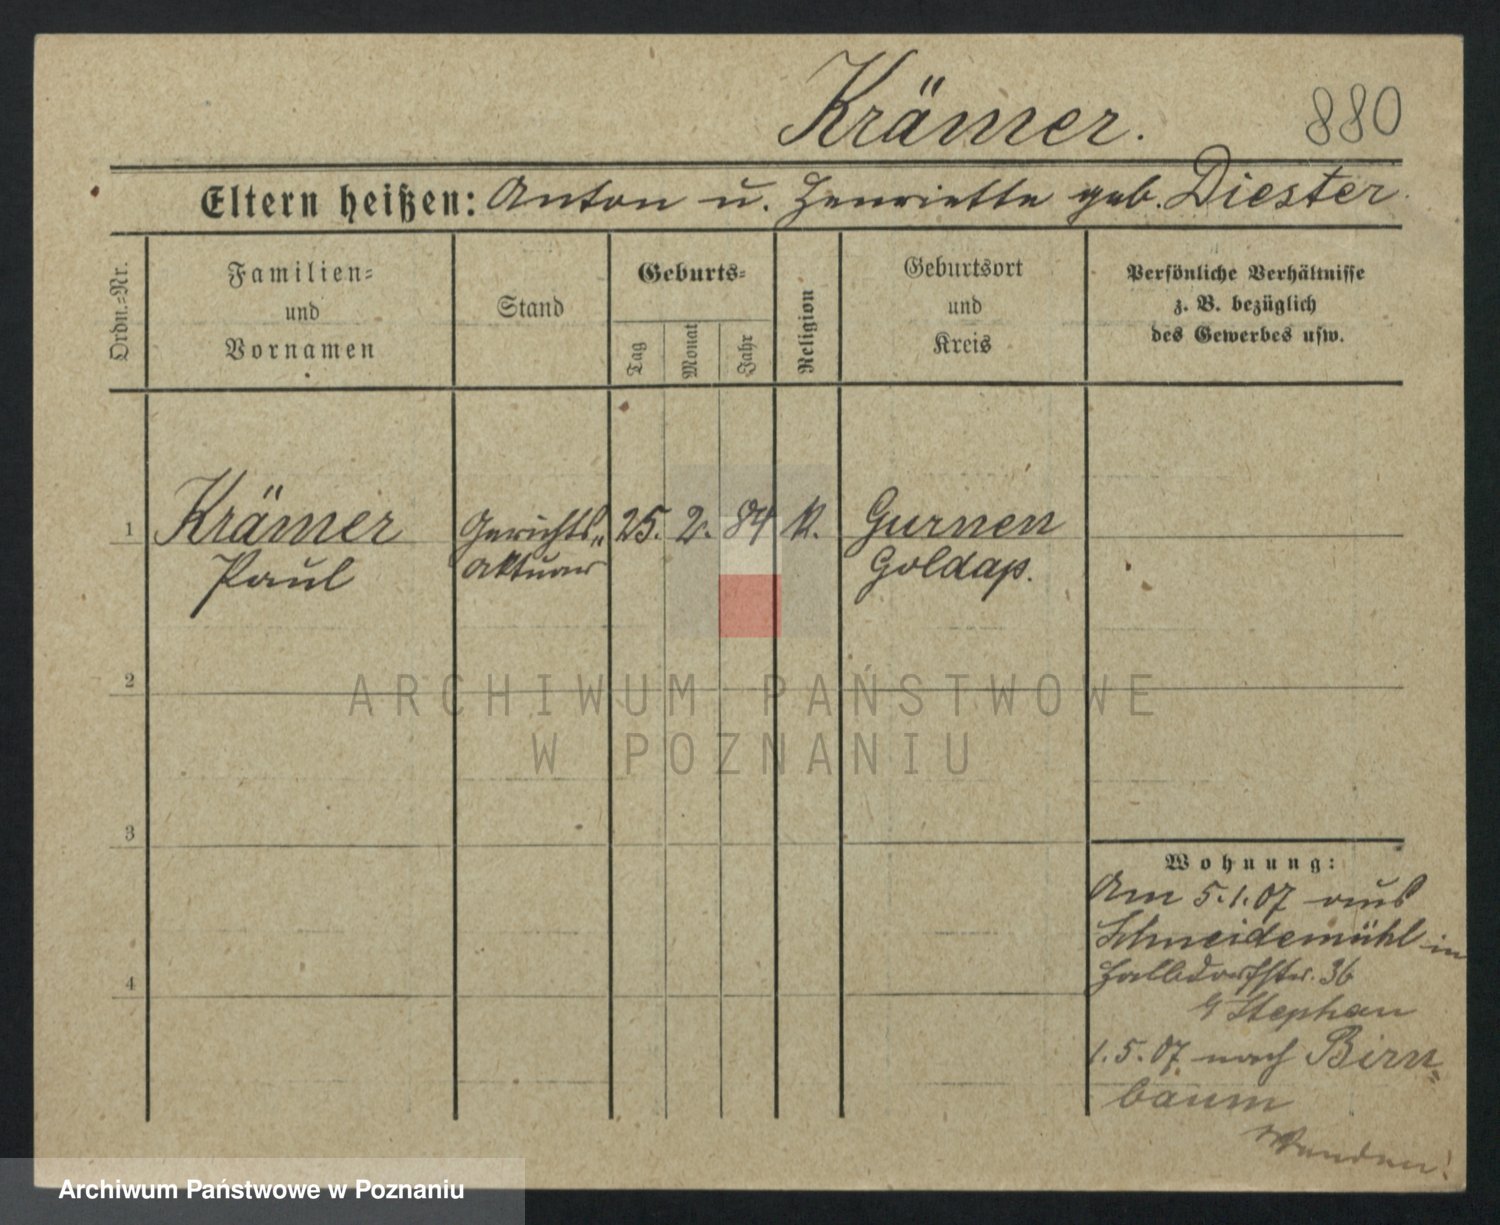 Krämer.
880
Eltern heißen: Anton u. Henriette geb. Diester.
Ordn.-Nr.
Familien-
und
Vornamen
Stand
Geburts-
Tag
Monat
Jahr
Religion
Geburtsort
und
Kreis
Persönliche Verhältnisse
z. B. bezüglich
des Gewerbes usw.
1
Krämer
Paul
Gerichts-
aktuar
25.
2.
84
K.
Gurnen
Goldap.
2
3
4
Wohnung:
Am 5.1.07 aus
Schneidemühl in
Halbdorfstr. 36
Stephan
1.5.07 nach Birn-
baum
Wenden!
ARCHIWUM PAŃSTWOWE
W POZNANIU
Archiwum Państwowe w Poznaniu